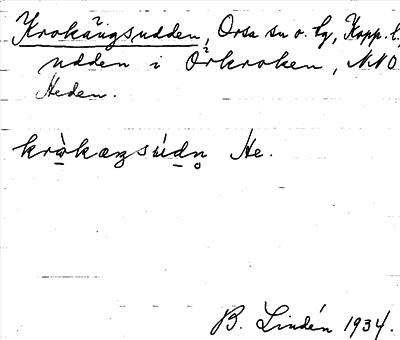 Krokängsudden, Orsa sn o. tg, Kopp. l.,
udden i Örkroken, NNO
Heden.
kràkæŋsúdn̥ He.
B. Lindén 1934.